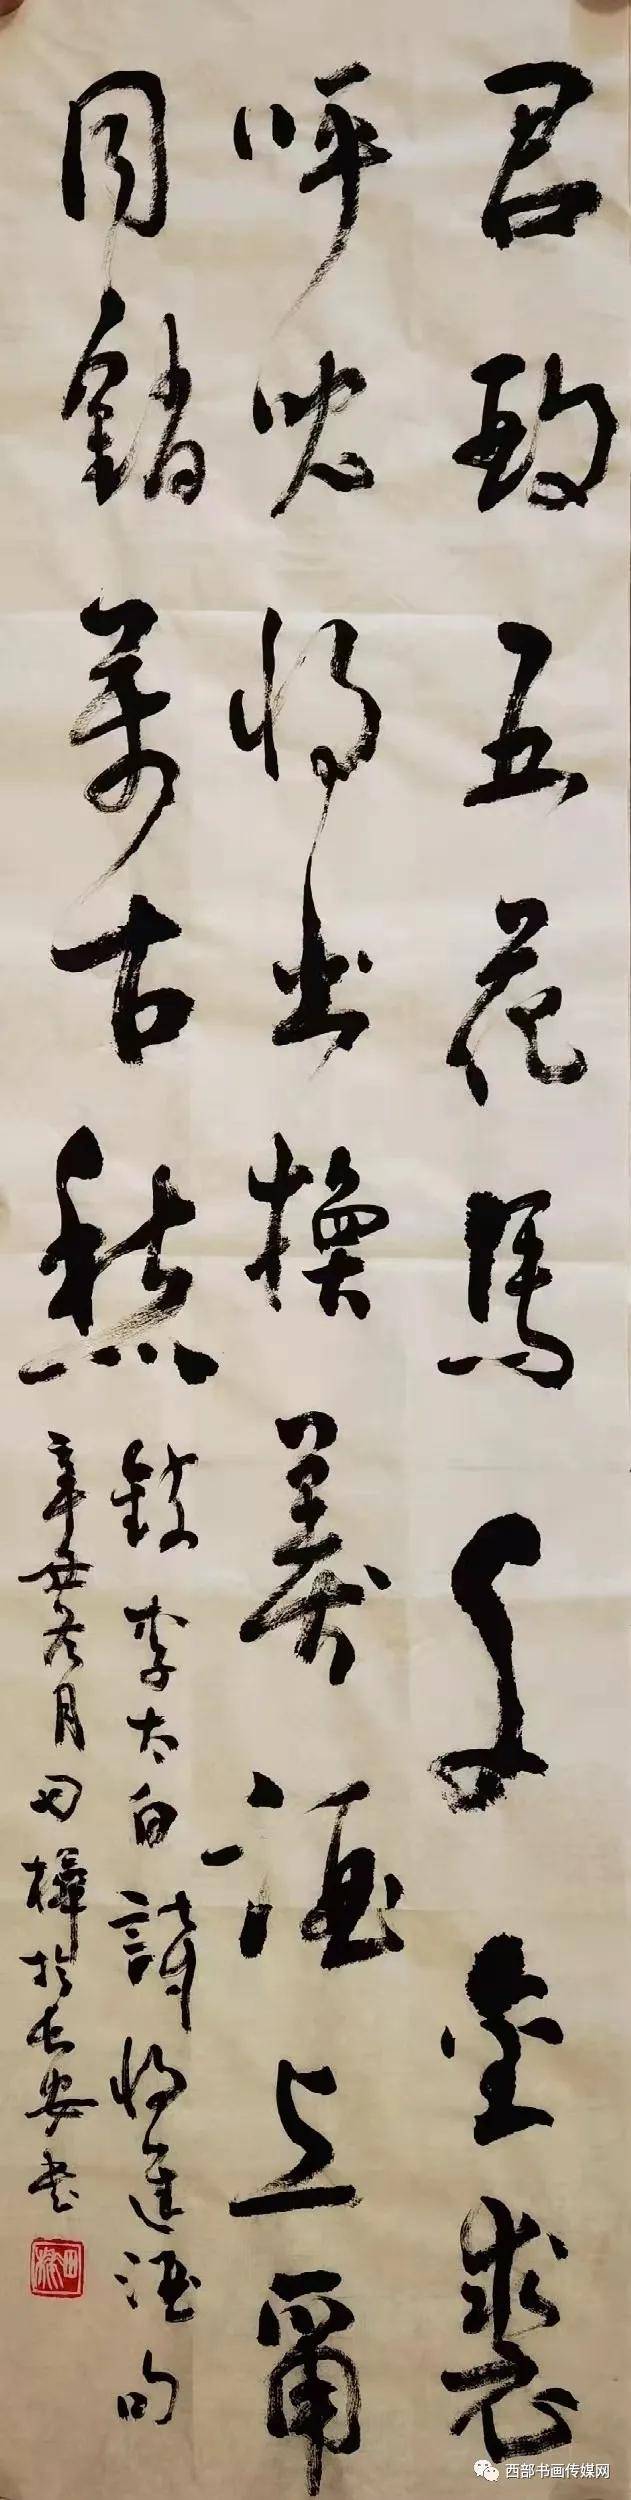 君致五花馬千金裘
呼兒將出換美酒与爾
同銷萬古愁
錄李太白詩將進酒句
辛丑冬月田樺於長安书
西部书画传媒网